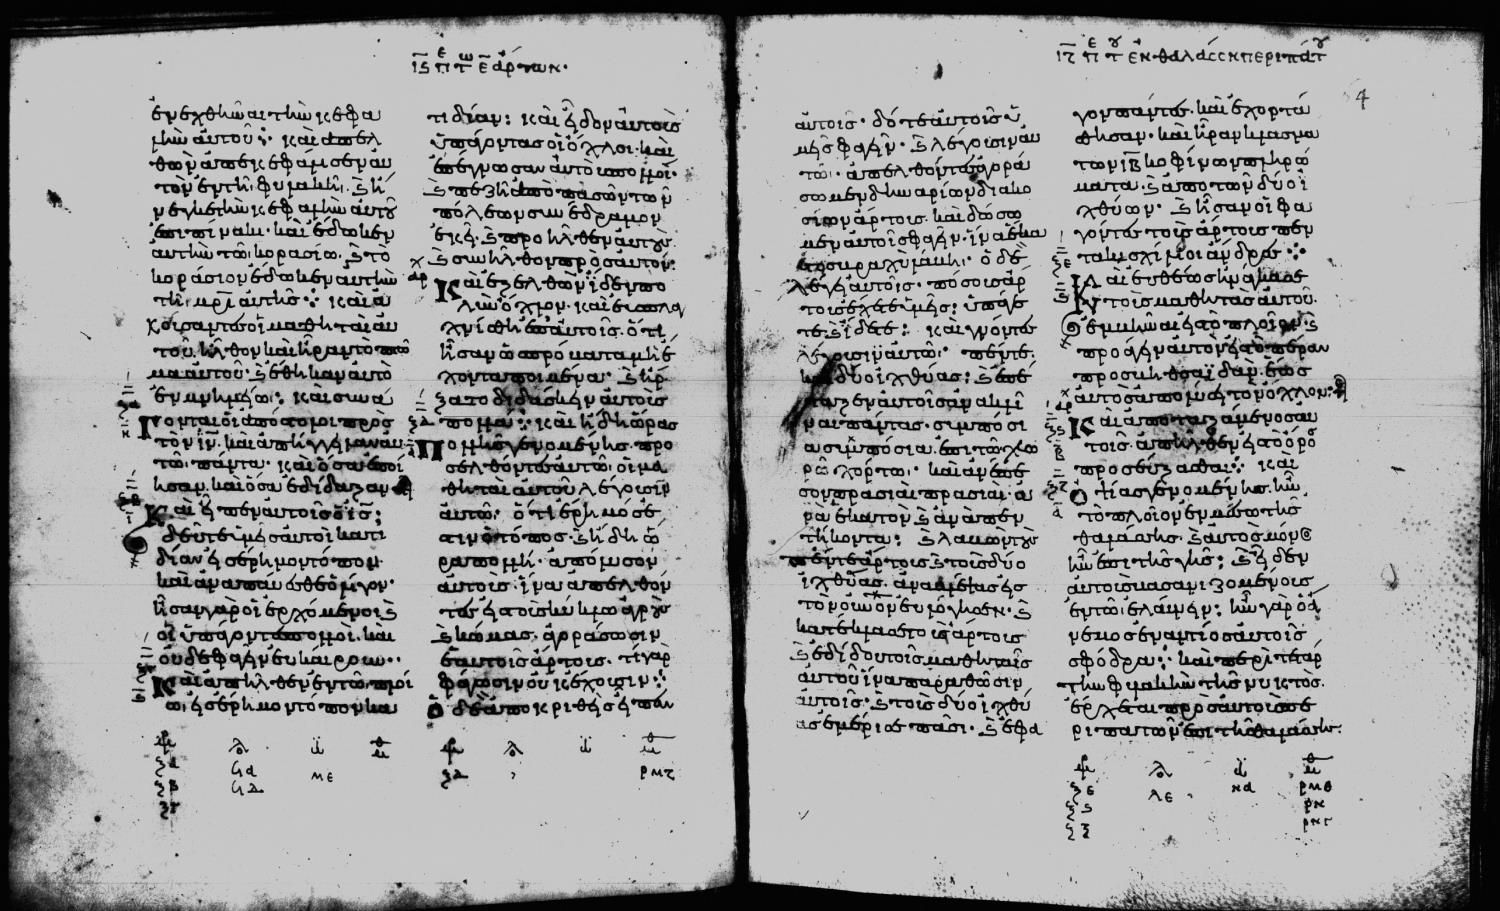 ις π^ε τ^ω ε ἄρτων.
ἐνεχθῆναι τὴν κεφα
λὴν αὐτοῦ: καὶ ἀπελ
θὼν ἀπεκεφάλισεν αὐ
τὸν ἐν τῇ φυλακῇ. ϗ ἤ
νεγκε τὴν κεφαλὴν αὐτοῦ
ἐπὶ πίνακι. καὶ ἔδωκεν
αὐτὴν τῷ κορασίῳ. ϗ τὸ
κοράσιον ἔδωκεν αὐτὴν
τῇ μρὶ αὐτῆς: καὶ ἀ
κούσαντες οἱ μαθηταὶ αὐ
τοῦ. ἦλθον καὶ ἦραν τὸ πτῶ
μα αὐτοῦ. ϗ ἔθηκαν αὐτὸ
ἐν μνημείῳ: καὶ συνά
γονται οἱ ἀπόστολοι πρὸς
τὸν ιν. καὶ ἀπήγγειλαν αὐ
τῷ πάντα. καὶ ὅσα ἐποί
ησαν. καὶ ὅσα ἐδίδαξαν
Καὶ εἶπεν αὐτοῖς ὁ ις;
δεῦτε ὑμεῖς αὐτοὶ κατι
δίαν εἰς ἔρημον τόπον
καὶ ἀναπαύεσθε ὀλίγον.
ἦσαν γὰρ οἱ ἐρχόμενοι ϗ
οἱ ὑπάγοντες πολλοί. καὶ
οὐδὲ φαγεῖν εὐκαίρουν..
Καὶ ἀπῆλθεν ἐν τῷ πλοί
ῳ, εἰς ἔρημον τόπον κα
τιδίαν: καὶ εἶδον αὐτοὺς
ὑπάγοντας οἱ ὄχλοι. καὶ
ἐπέγνωσαν αὐτὸν πολλοί.
ϗ πεζῇ ἀπὸ πασῶν τῶν
πόλεων συνέδραμον
ἐκεῖ. ϗ προῆλθεν αὐτούς.
ϗ συνῆλθον πρὸς αὐτόν:
Καὶ ἐξελθὼν ἴδεν πο
λὺν ὄχλον. καὶ ἐσπλα
χνίσθη ἐπ αὐτοῖς. ὅτι
ἦσαν ὡς πρόβατα μὴ ἔ
χοντα ποιμένα. ϗ ἤρ
ξατο διδάσκειν αὐτοὺς
πολλά: καὶ ἤδη ὥρας
πολλῆς γενομένης. προ
σελθόντες αὐτῷ οἱ μα
θηταὶ αὐτοῦ λέγουσιν
αὐτῷ. ὅτι ἔρημός ἐ
στιν ὁ τόπος. ϗ ἤδη ὥ
ρα πολλή. ἀπόλυσον
αὐτούς. ἵνα ἀπελθόν
τες εἰς τοὺς κύκλῳ ἀγροὺς
ϗ κώμας. ἀγοράσωσιν
ἑαυτοῖς ἄρτους. τί γὰρ
φάγωσιν οὐκ ἔχουσιν:
Ὁ δὲ ἀποκριθεὶς εἶπεν
ιζ π^ε τ^ου ἐν θαλάσσῃ περιπάτ^ου
4
αὐτοῖς. δότε αὐτοῖς ὑ
μεῖς φαγεῖν. ϗ λέγουσιν αὐ
τῷ. ἀπελθόντες ἀγορά
σωμεν δηναρίων διακο
σίων ἄρτους. καὶ δώσω
μεν αὐτοῖς φαγεῖν. ἵνα ἕκα
στος βραχύ τι λάβῃ. ὁ δὲ
λέγει αὐτοῖς. πόσους ἄρ
τους ἔχετε ὑμεῖς; ὑπάγε
τε. ϗ ἴδετε: καὶ γνόντες
λέγουσιν αὐτῷ. πέντε.
καὶ δύο ἰχθύας: ϗ ἐπέ
ταξεν αὐτοῖς ἀνακλῖ
ναι πάντας. συμπόσι
α συμπόσια. ἐπὶ τῷ χλω
ρῷ χόρτῳ. καὶ ἀνέπε
σον πρασιαὶ πρασιαί. ἀ
νὰ ἑκατὸν ϗ ἀνὰ πεν
τήκοντα: ϗ λαβὼν τοὺς
πέντε ἄρτους ϗ τοὺς δύο
ἰχθύας. ἀναβλέψας εἰς
τὸν οὐνὸν εὐλόγησεν. ϗ
κατέκλασε τοὺς ἄρτους
ϗ ἐδίδου τοῖς μαθηταῖς
αὐτοῦ ἵνα παραθῶσιν
αὐτοῖς. ϗ τοὺς δύο ἰχθύ
ας ἐμέρισε πᾶσι. ϗ ἔφα
γον πάντες. καὶ ἐχορτά
σθησαν. καὶ ἦραν κλασμα
των ιβ κοφίνων πληρώ
ματα. ϗ ἀπὸ τῶν δύο ἰ
χθύων. ϗ ἦσαν οἱ φα
γόντες τοὺς ἄρτους πεν
τακισχίλιοι ἄνδρες:
Καὶ εὐθέως ἠνάγκασε
τοὺς μαθητὰς αὐτοῦ.
ἐμβῆναι εἰς τὸ πλοῖον. ϗ
προάγειν αὐτὸν εἰς τὸ πέραν
πρὸς βηθσαϊδάν. ἕως
αὐτὸς ἀπολύσει τὸν ὄχλον:
Καὶ ἀποταξάμενος αὐ
τοῖς. ἀπῆλθεν εἰς τὸ ὄρο
προσεύξασθαι: καὶ
ὀψίας γενομένης. ἦν
τὸ πλοῖον ἐν μέσῳ τῆς
θαλάσσης. ϗ αὐτὸς μόνος
ἦν ἐπὶ τῆς γῆς; ϗ εἶδεν
αὐτοὺς βασανιζομένους
ἐν τῷ ἐλαύνειν: ἦν γὰρ ὁ ἄ
νεμος ἐναντίος αὐτοῖς
σφόδρα: καὶ περὶ τετάρ
την φυλακὴν τῆς νυκτός.
ἔρχεται πρὸς αὐτοὺς πε
ριπατῶν ἐπὶ τῆς θαλάσσης.